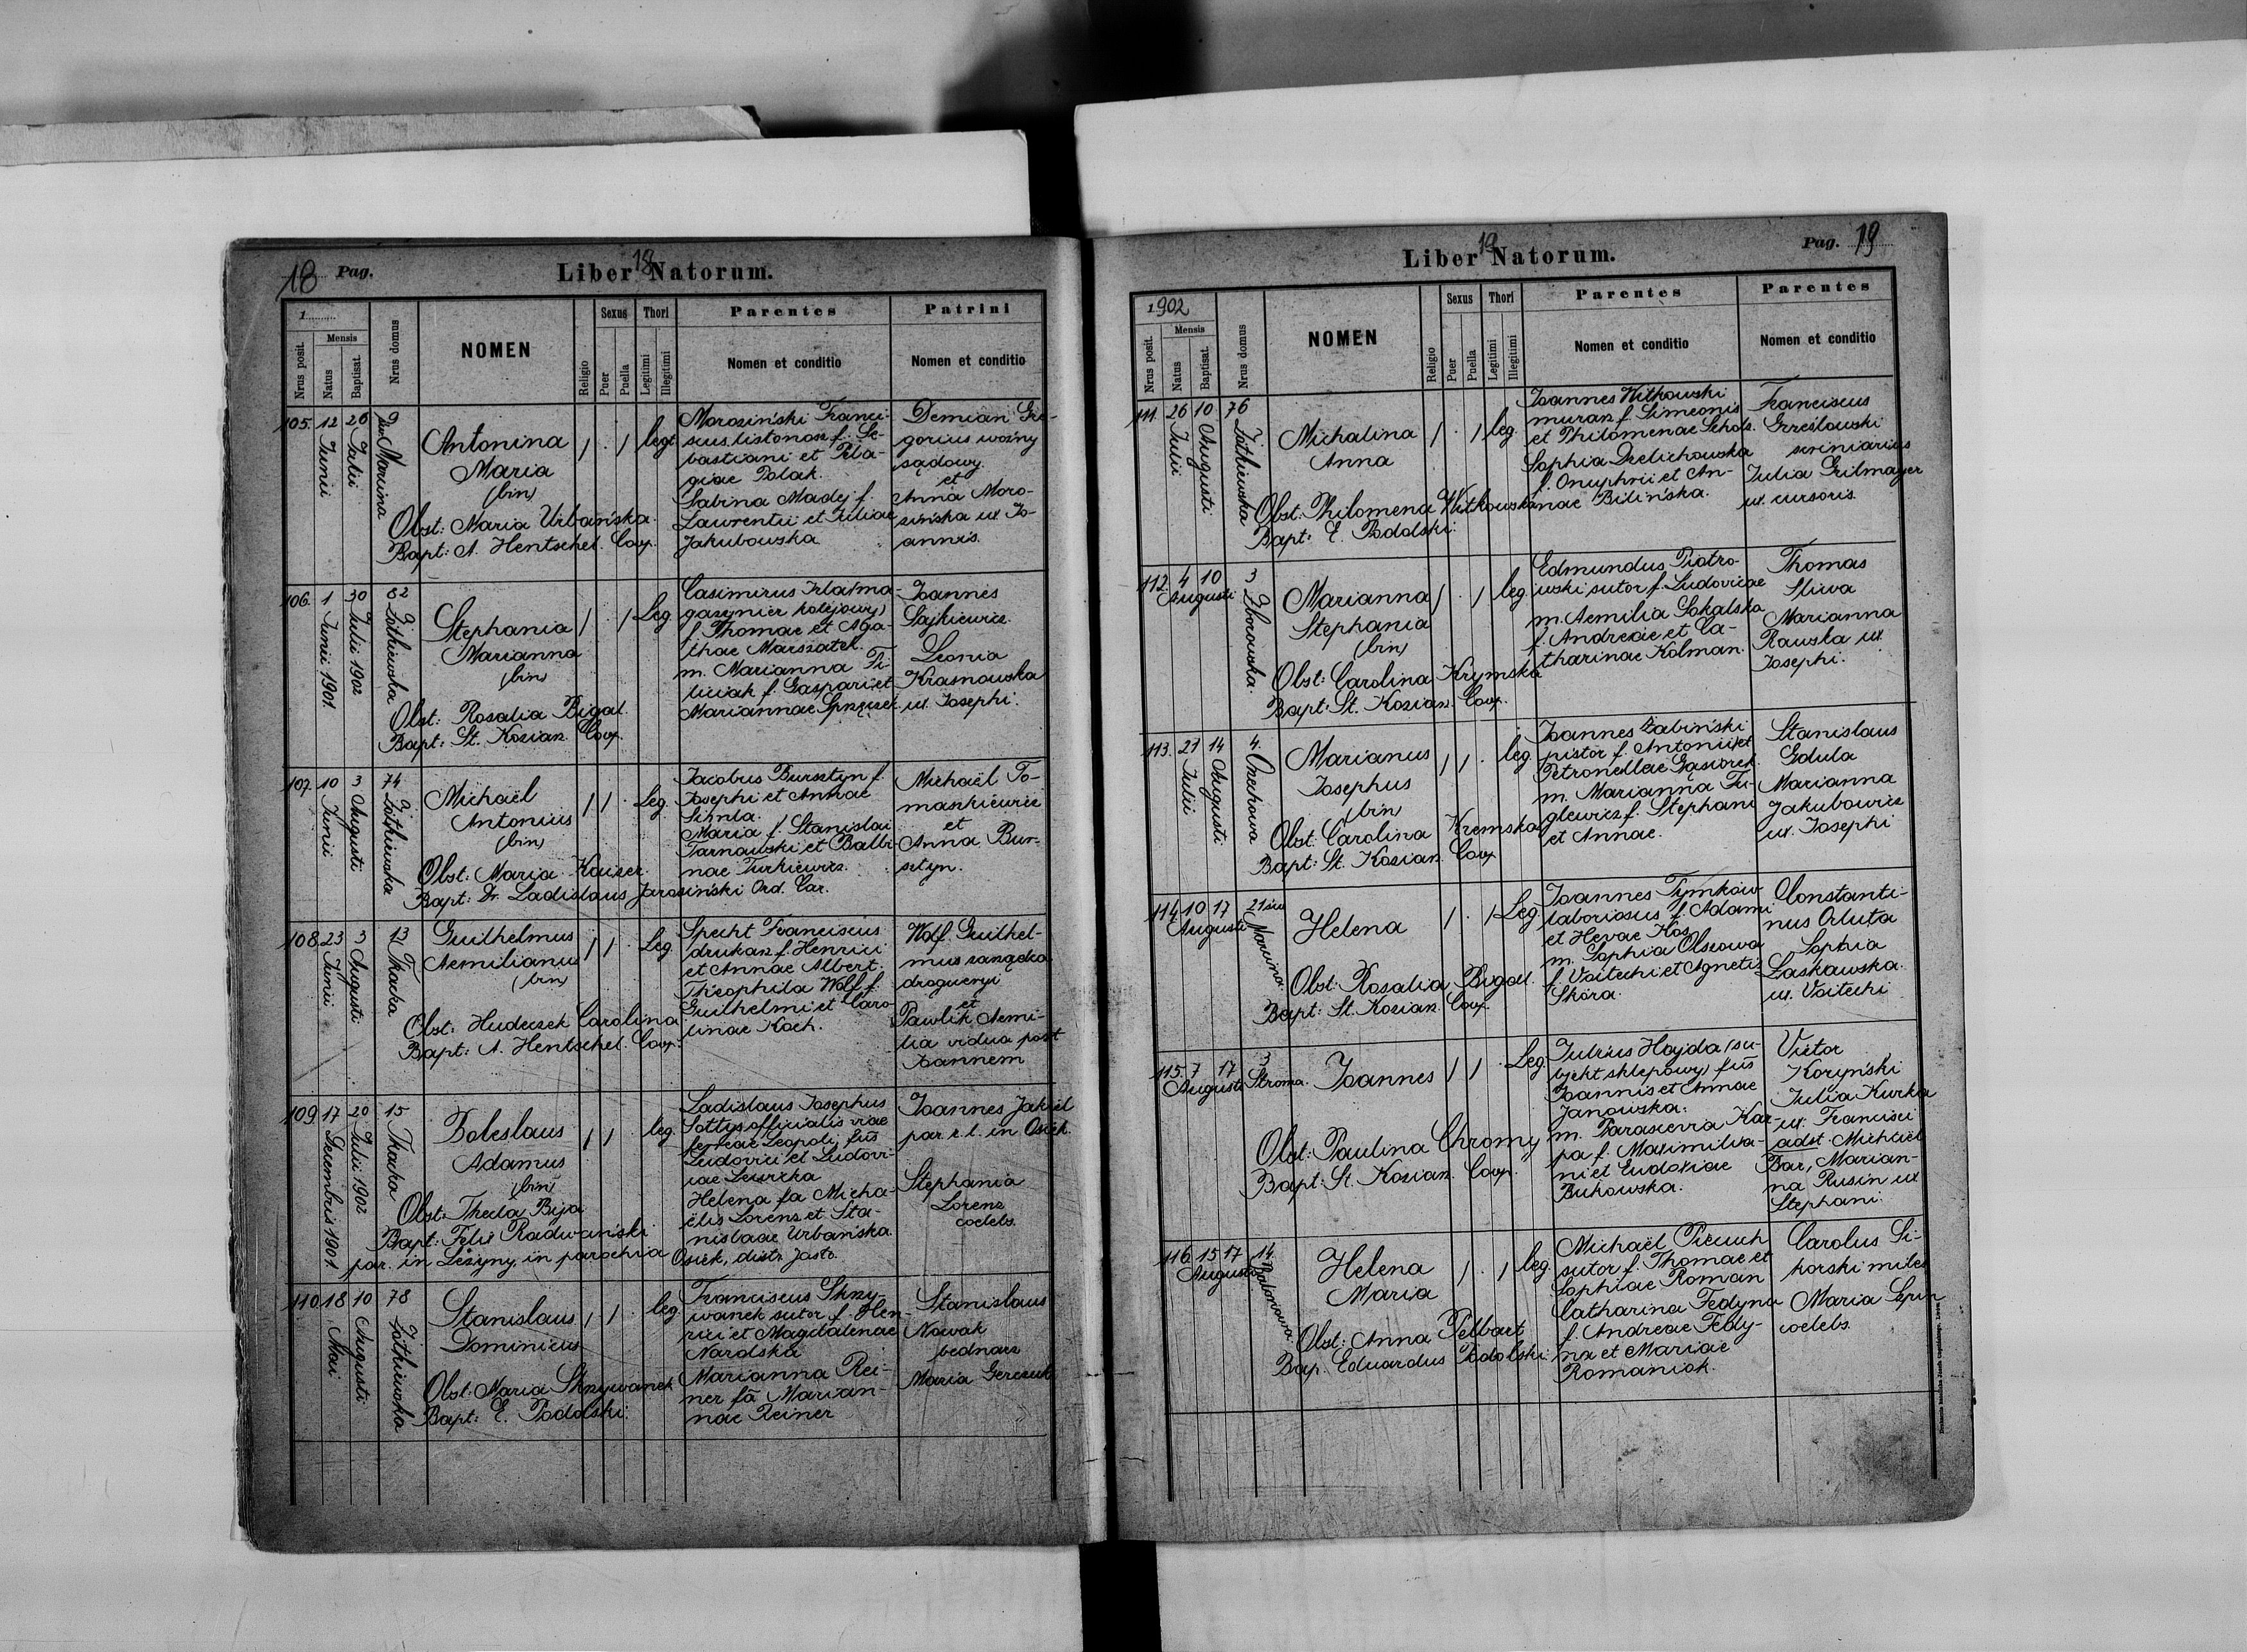 18 Pag.
Liber Natorum.
18
1
Nrus posit.
Mensis
Natus
Baptisat.
Nrus domus
NOMEN
Religio
Sexus
Puer
Puella
Thori
Legitimi
Illegitimi
Parentes
Nomen et conditio
Patrini
Nomen et conditio
105. 12 Junii 26 Julii 9 Marcina
Antonina
Maria
(bin)
Obst: Maria Urbańska
Bapt: A. Hentschel. Coop.
1 . 1 legt.
Morosiński Franci-
scus listonosz f. Se-
bastiani et Pela-
giae Polak.
Sabina Madej f.
Laurentii et Juliae
Jakubowska
Demian Gre-
gorius woźny
sądowy.
et
Anna Moro-
sińska ux Jo-
annis.
106. 1 Junii 1901. 30 Julii 1902 82 Żółkiewska
Stephania
Marianna
(bin)
Obst: Rosalia Bigal.
Bapt: St. Kozian. Coop.
1 . 1 Leg.
Casimirus (ma-
gazynier kolejowy)
f. Thomae et Aga-
thae Marszałek.
m. Marianna Pi-
liciak f. Gaspari et
Mariannae
Joannes
Sajkiewicz.
Leonia
Krasnowska
ux. Josephi.
107. 10 Junii 3 Augusti 74 Żółkiewska
Michaël
Antonius
(bin)
Obst: Maria Kaiser.
Bapt: Dr. Ladislaus Jarosiński Ord. Car.
1 1 . Leg.
Jacobus Bursztyn f.
Josephi et Annae
Maria f. Stanislai
Tarnawski et Balbi-
nae Turkiewicz.
Michaël To-
maszkiewicz
et
Anna Bur-
sztyn.
108. 23 Junii 3 Augusti 13 Tkacka
Guilhelmus
Aemilianus
(bin)
Obst: Hudeczek Carolina
Bapt: A. Hentschel. Coop.
1 1 . Leg.
Specht Franciscus
drukarz f. Henrici
et Annae Albert.
Theophila Wolf f.
Guilhelmi et Caro-
linae Koch.
Wolf. Guilhel-
mus zarządca
drogueryi
et
Pawlik Aemi-
lia vidua post
Joannem
109. 17 Decembris 1901. 20 Julii 1902 15 Tkacka
Boleslaus
Adamus
(bin)
Obst: Thecla Bija
Bapt: Felix Radwański
par. in Leżyny, in parochia Osiek, distr. Jasło.
1 1 . leg.
Ladislaus Josephus
Sołtys officialis viae
ferreae Leopoli, fius
Ludovici et Ludovi-
cae Lewicka
Helena fa Micha-
ëlis Lorenz et Sta-
nislaae Urbańska.
Joannes Jakiel
par. r. l. in Osiek.
Stephania
Lorenz
coelebs.
110. 18 Maii 10 Augusti 78 Żółkiewska
Stanislaus
Dominicus
Obst: Maria Skrzywanek
Bapt: E. Podolski.
1 1 . leg.
Franciscus Skrzy-
wanek sutor f. Hen-
rici et Magdalenae
Narolska
Marianna Rei-
ner fa Marian-
nae Reiner
Stanislaus
Nowak
bednarz
Maria
Liber Natorum.
19
Pag. 19
1902
Nrus posit.
Mensis
Natus
Baptisat.
Nrus domus
NOMEN
Religio
Sexus
Puer
Puella
Thori
Legitimi
Illegitimi
Parentes
Nomen et conditio
Parentes
Nomen et conditio
111. 26 Julii 10 Augusti 76 Żółkiewska
Michalina
Anna
Obst. Philomena Witkowska
Bapt: E. Podolski.
1 . 1 leg.
Joannes Witkowski
murarz f. Simeonis
et Philomenae Scholz.
Sophia Dzelichowska
f. Onuphrii et An-
nae Bilińska.
Franciscus
Grześlowski
scriniarius
Julia Grilmayer
ux. cursoris.
112. 4 10 Augusti 3 Zborowska.
Marianna
Stephania
(bin)
Obst: Carolina Krymska
Bapt: St. Kozian. Coop.
1 . 1 leg.
Edmundus Piotro-
wski sutor f. Ludovicae
m. Aemilia Sokalska
f. Andreae et Ca-
tharinae Kolman.
Thomas
Sliwa
Marianna
Rawska ux.
Josephi.
113. 21 Julii 14 Augusti 4. Orzechowa
Marianus
Josephus
(bin)
Obst. Carolina Kremska
Bapt: St. Kozian. Coop.
1 1 . leg.
Joannes Żabiński
pistor f. Antonii et
Petronellae Gąsiorek.
m. Marianna Fi-
glewicz f. Stephani
et Annae.
Stanislaus
Gdula
Marianna
Jakubowicz
ux. Josephi
114. 10 17 Augusti 21 Marcina.
Helena
Obst. Rosalia Bigal.
Bapt: St. Kozian. Coop.
1 . 1 Leg.
Joannes Tymków
laboriosus f. Adami
et Hevae Kos
m. Sophia Olszowa
f. Voitechi et Agnetis
Skóra.
Constanti-
nus Orluta
Sophia
Laskawska.
ux. Voitechi
115. 7 17 Augusti 3 Stroma.
Joannes
Obst: Paulina Chromy
Bapt: St. Kozian. Coop.
1 1 . Leg.
Julius Hajda (su-
bjekt sklepowy) fius
Joannis et Annae
Janowska.
m. Parascevia Kar-
pa f. Maximilia-
ni et Eudoxiae
Bukowska.
Victor
Korzyński
Julia Kurka
ux. Francisci
adst. Michael
Bar, Marian-
na Rusin ux
Stephani.
116. 15 17 Augusti 14.
Helena
Maria
Obst: Anna Pelbart
Bap. Eduardus Podolski.
1 . 1 leg.
Michaël Pieciuch
sutor f. Thomae et
Sophiae Roman
Catharina Fedyna
f. Andreae Fedy-
na et Mariae
Romaniak.
Carolus Si-
korski miles
Maria
coelebs.